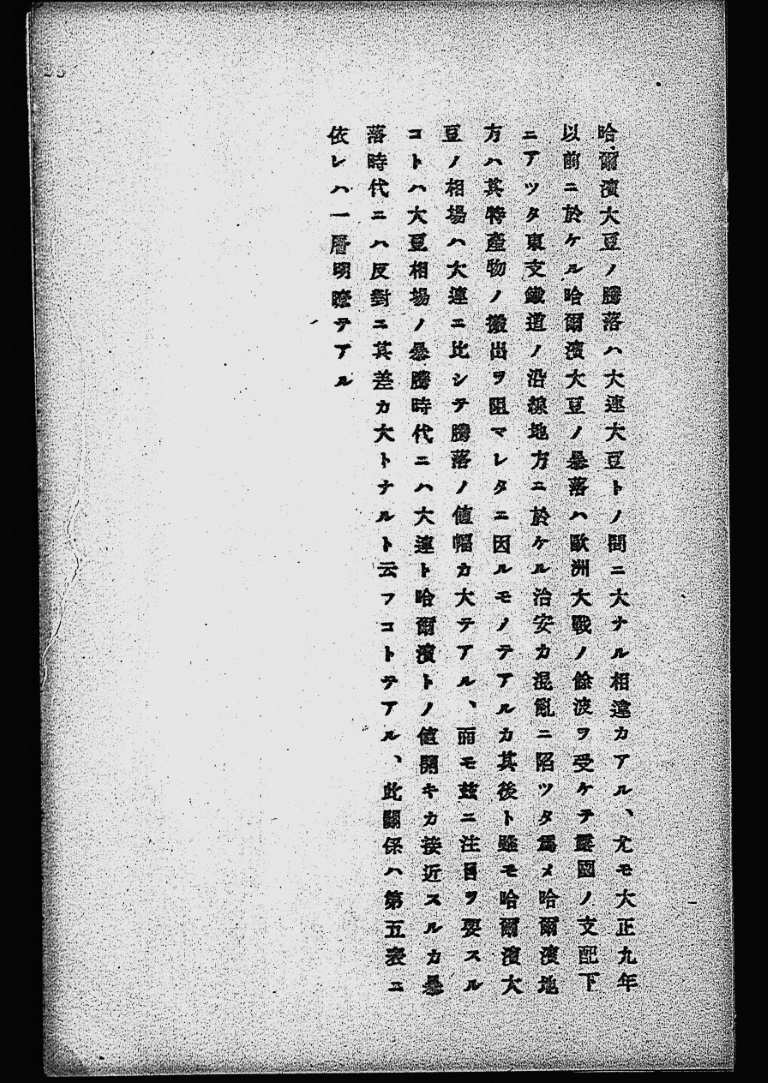 哈爾濱大豆ノ騰落ハ大連大豆トノ間ニ大ナル相違カアル、尤モ大正九年
以前ニ於ケル哈爾濱大豆ノ暴落ハ歐洲大戰ノ餘波ヲ受ケテ露國ノ支配下
ニアツタ東支鐵道ノ沿線地方ニ於ケル治安カ混亂ニ陷ツタ爲メ哈爾濱地
方ハ其特產物ノ搬出ヲ阻マレタニ因ルモノテアルカ其後ト雖モ哈爾濱大
豆ノ相場ハ大連ニ比シテ騰落ノ値幅カ大テアル、而モ茲ニ注目ヲ要スル
コトハ大豆相場ノ暴騰時代ニハ大連ト哈爾濱トノ値開キカ接近スルカ暴
落時代ニハ反對ニ其差カ大トナルト云フコトテアル、此關係ハ第五表ニ
依レハ一層明瞭テアル